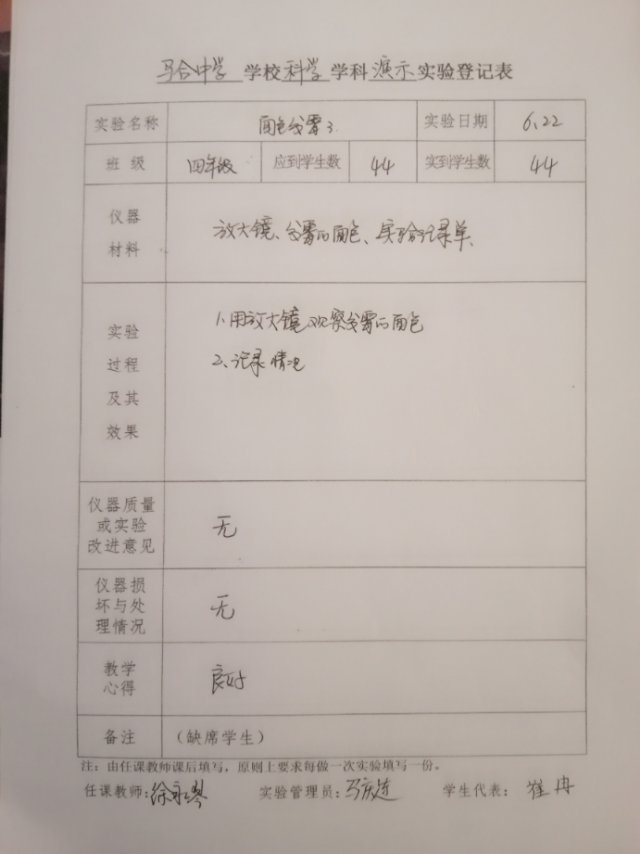 马合中学 学校 科学 学科 演示 实验登记表
实验名称 面包发霉了 实验日期 6.22
班 级 四年级 应到学生数 44 实到学生数 44
仪器
材料
放大镜、发霉的面包、实验记录单、
实验
过程
及其
效果
1.用放大镜观察发霉的面包
2、记录情况
仪器质量
或实验
改进意见
无
仪器损
坏与处
理情况
无
教学
心得
良好
备注 （缺席学生）
注：由任课教师课后填写，原则上要求每做一次实验填写一份。
任课教师：徐永琴 实验管理员：马庆莲 学生代表： 崔冉